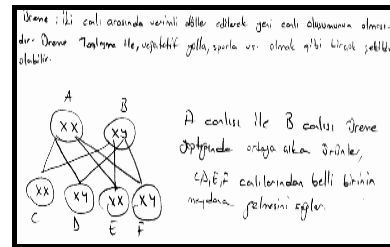 Üreme : İki canlı arasında verimli döller edilerek yeni canlı oluşumunun olması
dır. Üreme Tozlaşma ile, vejetatif yolla, sporla vs. olmak gibi birçok şekilde
olabilir.
A
B
XX
XY
XX
XY
XX
XY
C
D
E
F
A canlısı ile B canlısı Üreme
yaptığında ortaya çıkan ürünler,
C,D,E,F canlılarından belli birinin
meydana gelmesini sağlar.